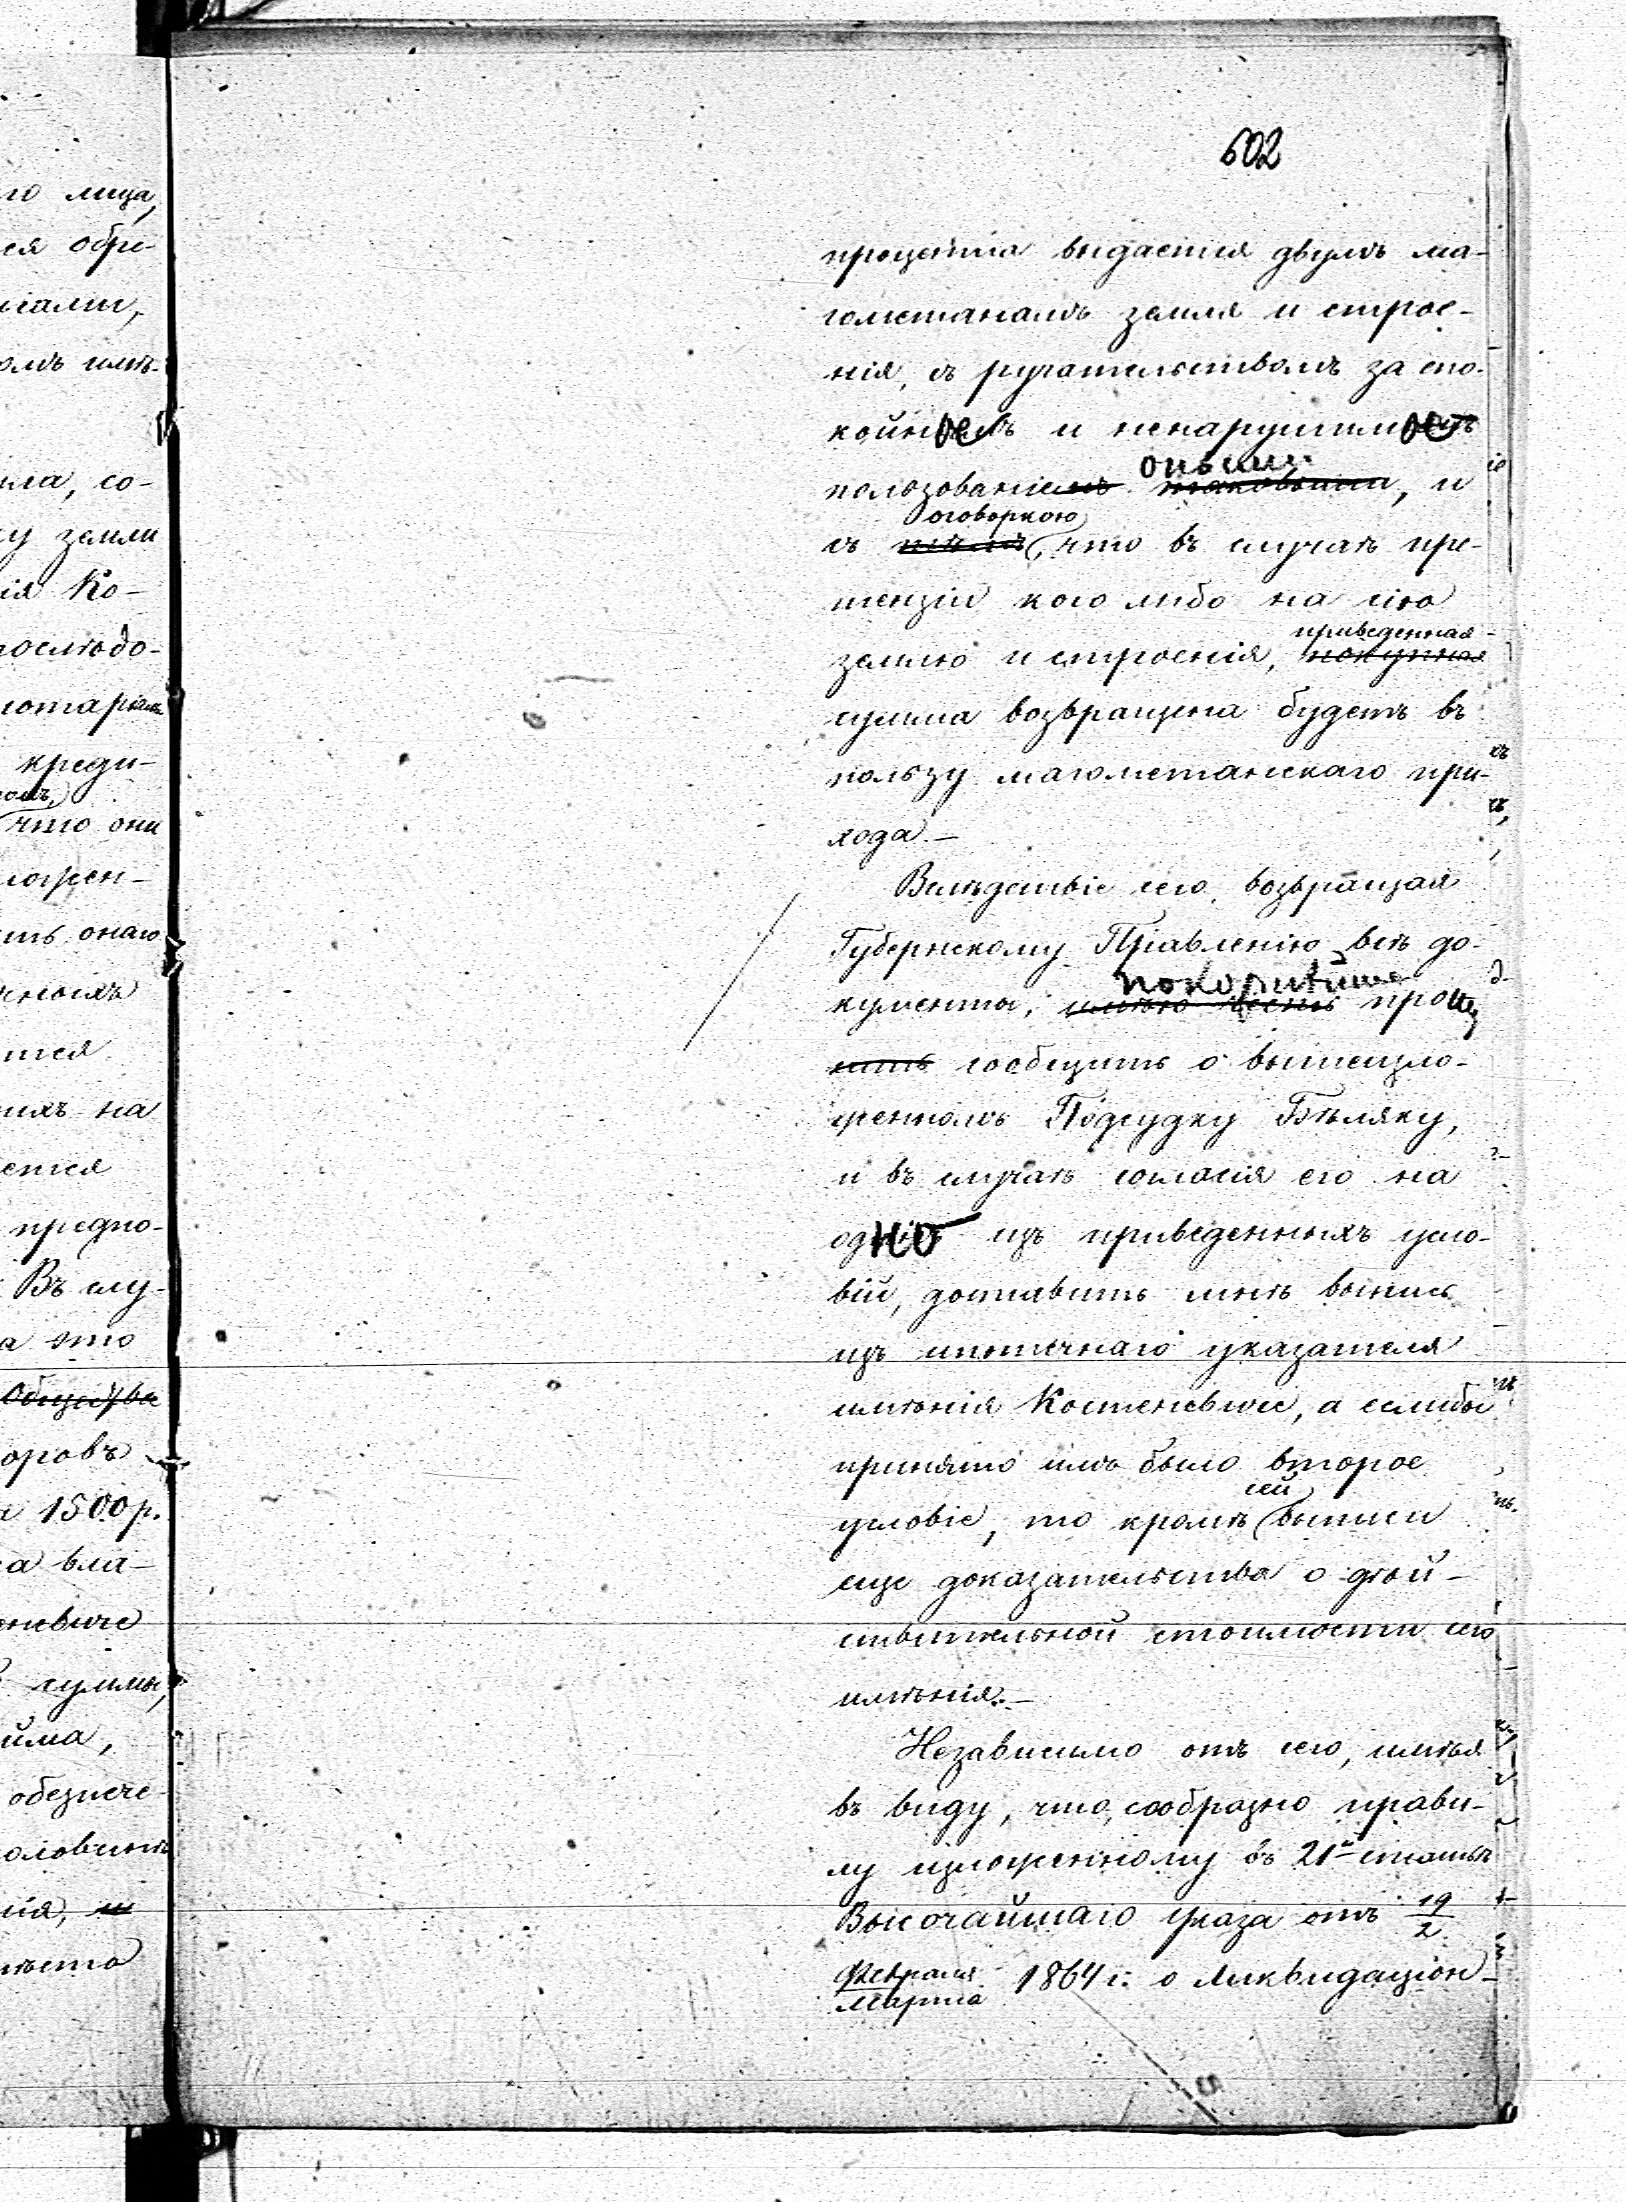 602
проценто выдается двумъ ма-
гометанамъ земля и строе-
нія, съ ручательствомъ за спо-
койное и ненарушимое
пользованіе оными, и
съ оговоркою, что въ случаѣ пре-
тензіи кого либо на сію
землю и строенія, приведенная
сумма возвращена будетъ въ
пользу магометанскаго при-
хода.—
Вслѣдствіе сего, возвращая
Губернскому Правленію всѣ до-
кументы, покорнѣйше прошу
сообщить о вышеизло-
женномъ Подсудку Бѣляку,
и въ случаѣ согласія его на
одно изъ приведенныхъ усло-
вій, доставить мнѣ выпись
изъ ипотечнаго указателя
имѣнія Костеневичe, а еслибы
принято имъ было второе
условіе, то кромѣ сей выписи
еще доказательства о дѣй-
ствительной стоимости сего
имѣнія.—
Независимо отъ сего, имѣя
въ виду, что, сообразно прави-
лу изложенному въ 21й статьѣ
Высочайшаго указа отъ 19/2
Февраля/Марта 1864 г. о Ликвидаціон-
го лица,
ся обре-
ила, со-
ку земли
ія Ко-
послѣдо-
креди-
что они
ть онаго
ится
ихъ на
ется
предпо-
Въ слу-
а это
Общества
оровъ
1500 р.
а вла-
невиче
суммы,
йма,
обезпече-
ія,